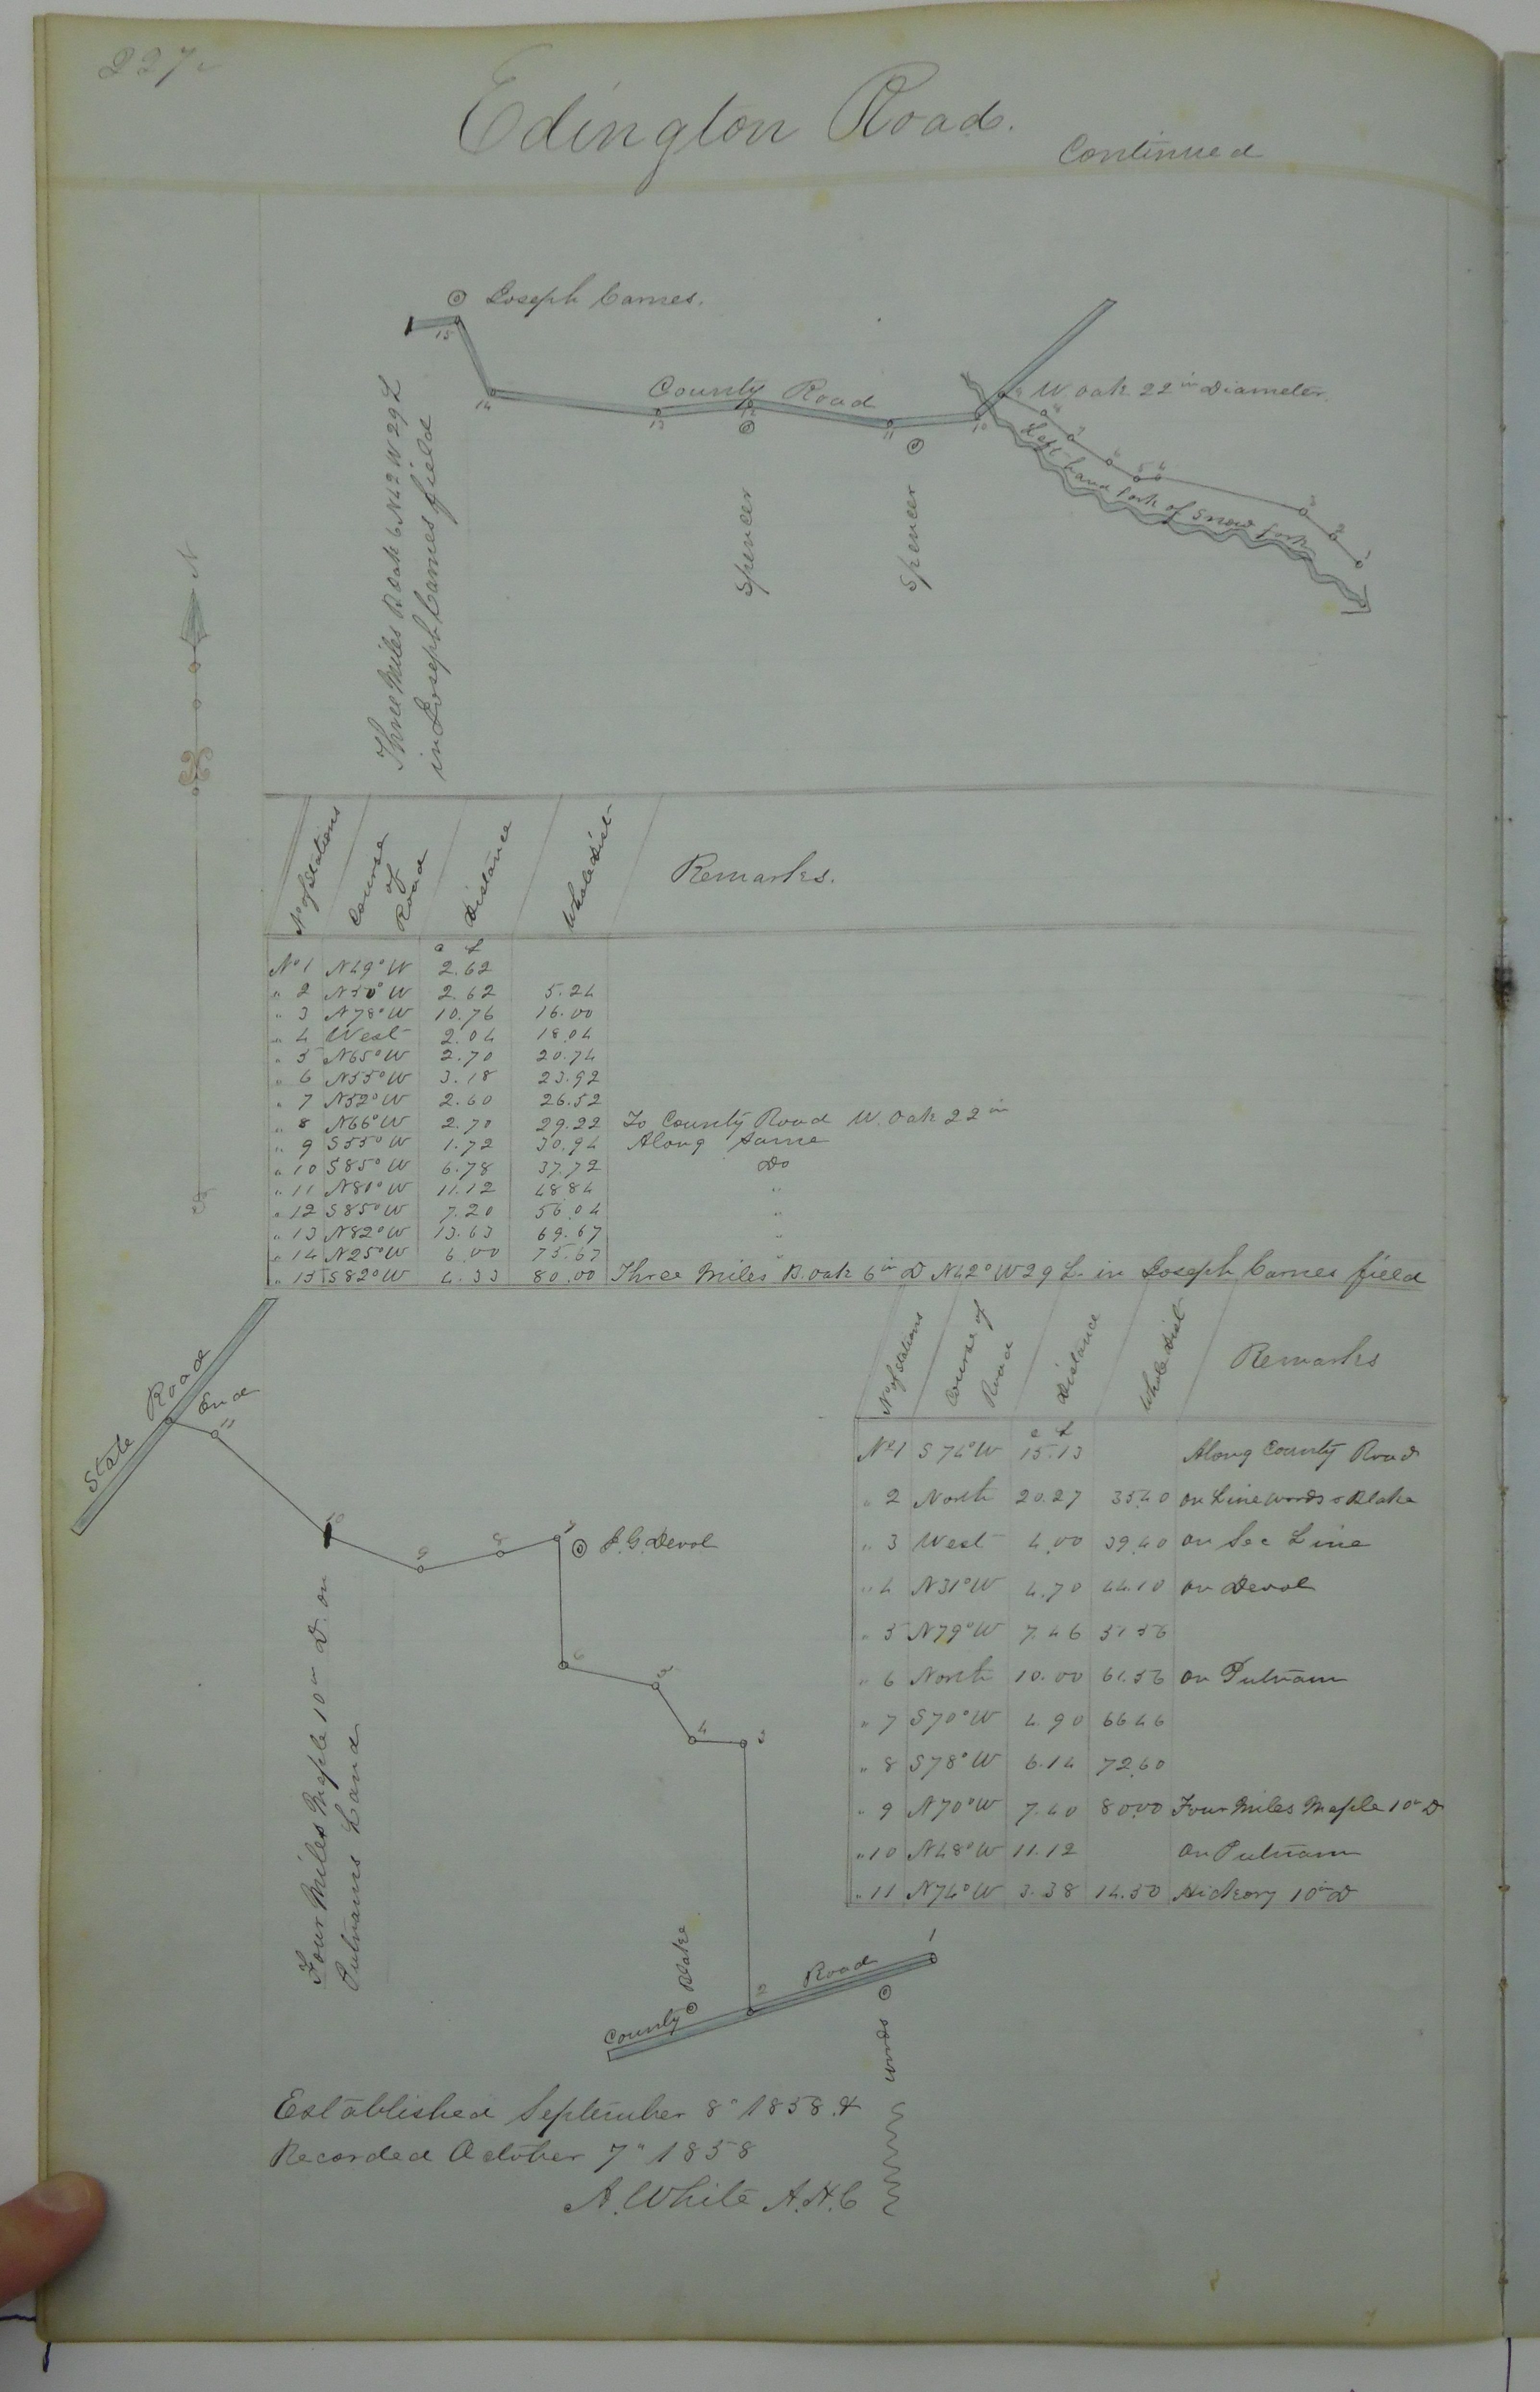 227
Edington Road.
Continued
Joseph Carnes.
15
14
County Road
13
12
11
10
9 W. oak 22 in Diameter
8
7
6
5 4
3
2
1
Left hand fork of Snow fork
Spencer
Spencer
Three Miles B Oak 6 N42 W 29 L
in Joseph Carnes field
N
S
No of Stations Course of Road Distance Whole Dist Remarks.
C L
No 1 N49°W 2.62
" 2 N50°W 2.62 5.24
" 3 N78°W 10.76 16.00
" 4 West 2.04 18.04
" 5 N65°W 2.70 20.74
" 6 N55°W 3.18 23.92
" 7 N52°W 2.60 26.52
" 8 N66°W 2.70 29.22 To County Road W. Oak 22 in
" 9 S55°W 1.72 30.94 Along Same
" 10 S85°W 6.78 37.72 Do
" 11 N81°W 11.12 48.84 "
" 12 S85°W 7.20 56.04 "
" 13 N82°W 13.63 69.67 "
" 14 N25°W 6.00 75.67 "
" 15 S82°W 4.33 80.00 Three Miles B. oak 6 in D N42°W 29 L. in Joseph Carnes field
State Road
End
11
10
9
8
7
J. G. Devol
6
5
4
3
Four Miles Maple 10 in D. on
Putnams Land
No of Stations Course of Road Distance Whole Dist Remarks
C L
No 1 S74°W 15.13 Along County Road
" 2 North 20.27 35.40 on Line Woods & Blake
" 3 West 4.00 39.40 on Sec Line
" 4 N31°W 4.70 44.10 on Devol
" 5 N79°W 7.46 51.56
" 6 North 10.00 61.56 on Putnam
" 7 S70°W 4.90 66.46
" 8 S78°W 6.14 72.60
" 9 N70°W 7.40 80.00 Four Miles Maple 10 in D
" 10 N48°W 11.12 on Putnam
" 11 N74°W 3.38 14.50 Hickory 10 in D
Blake
County Road
2
1
Woods
Established September 8" 1858 &
Recorded October 7" 1858
A. White A.H.C